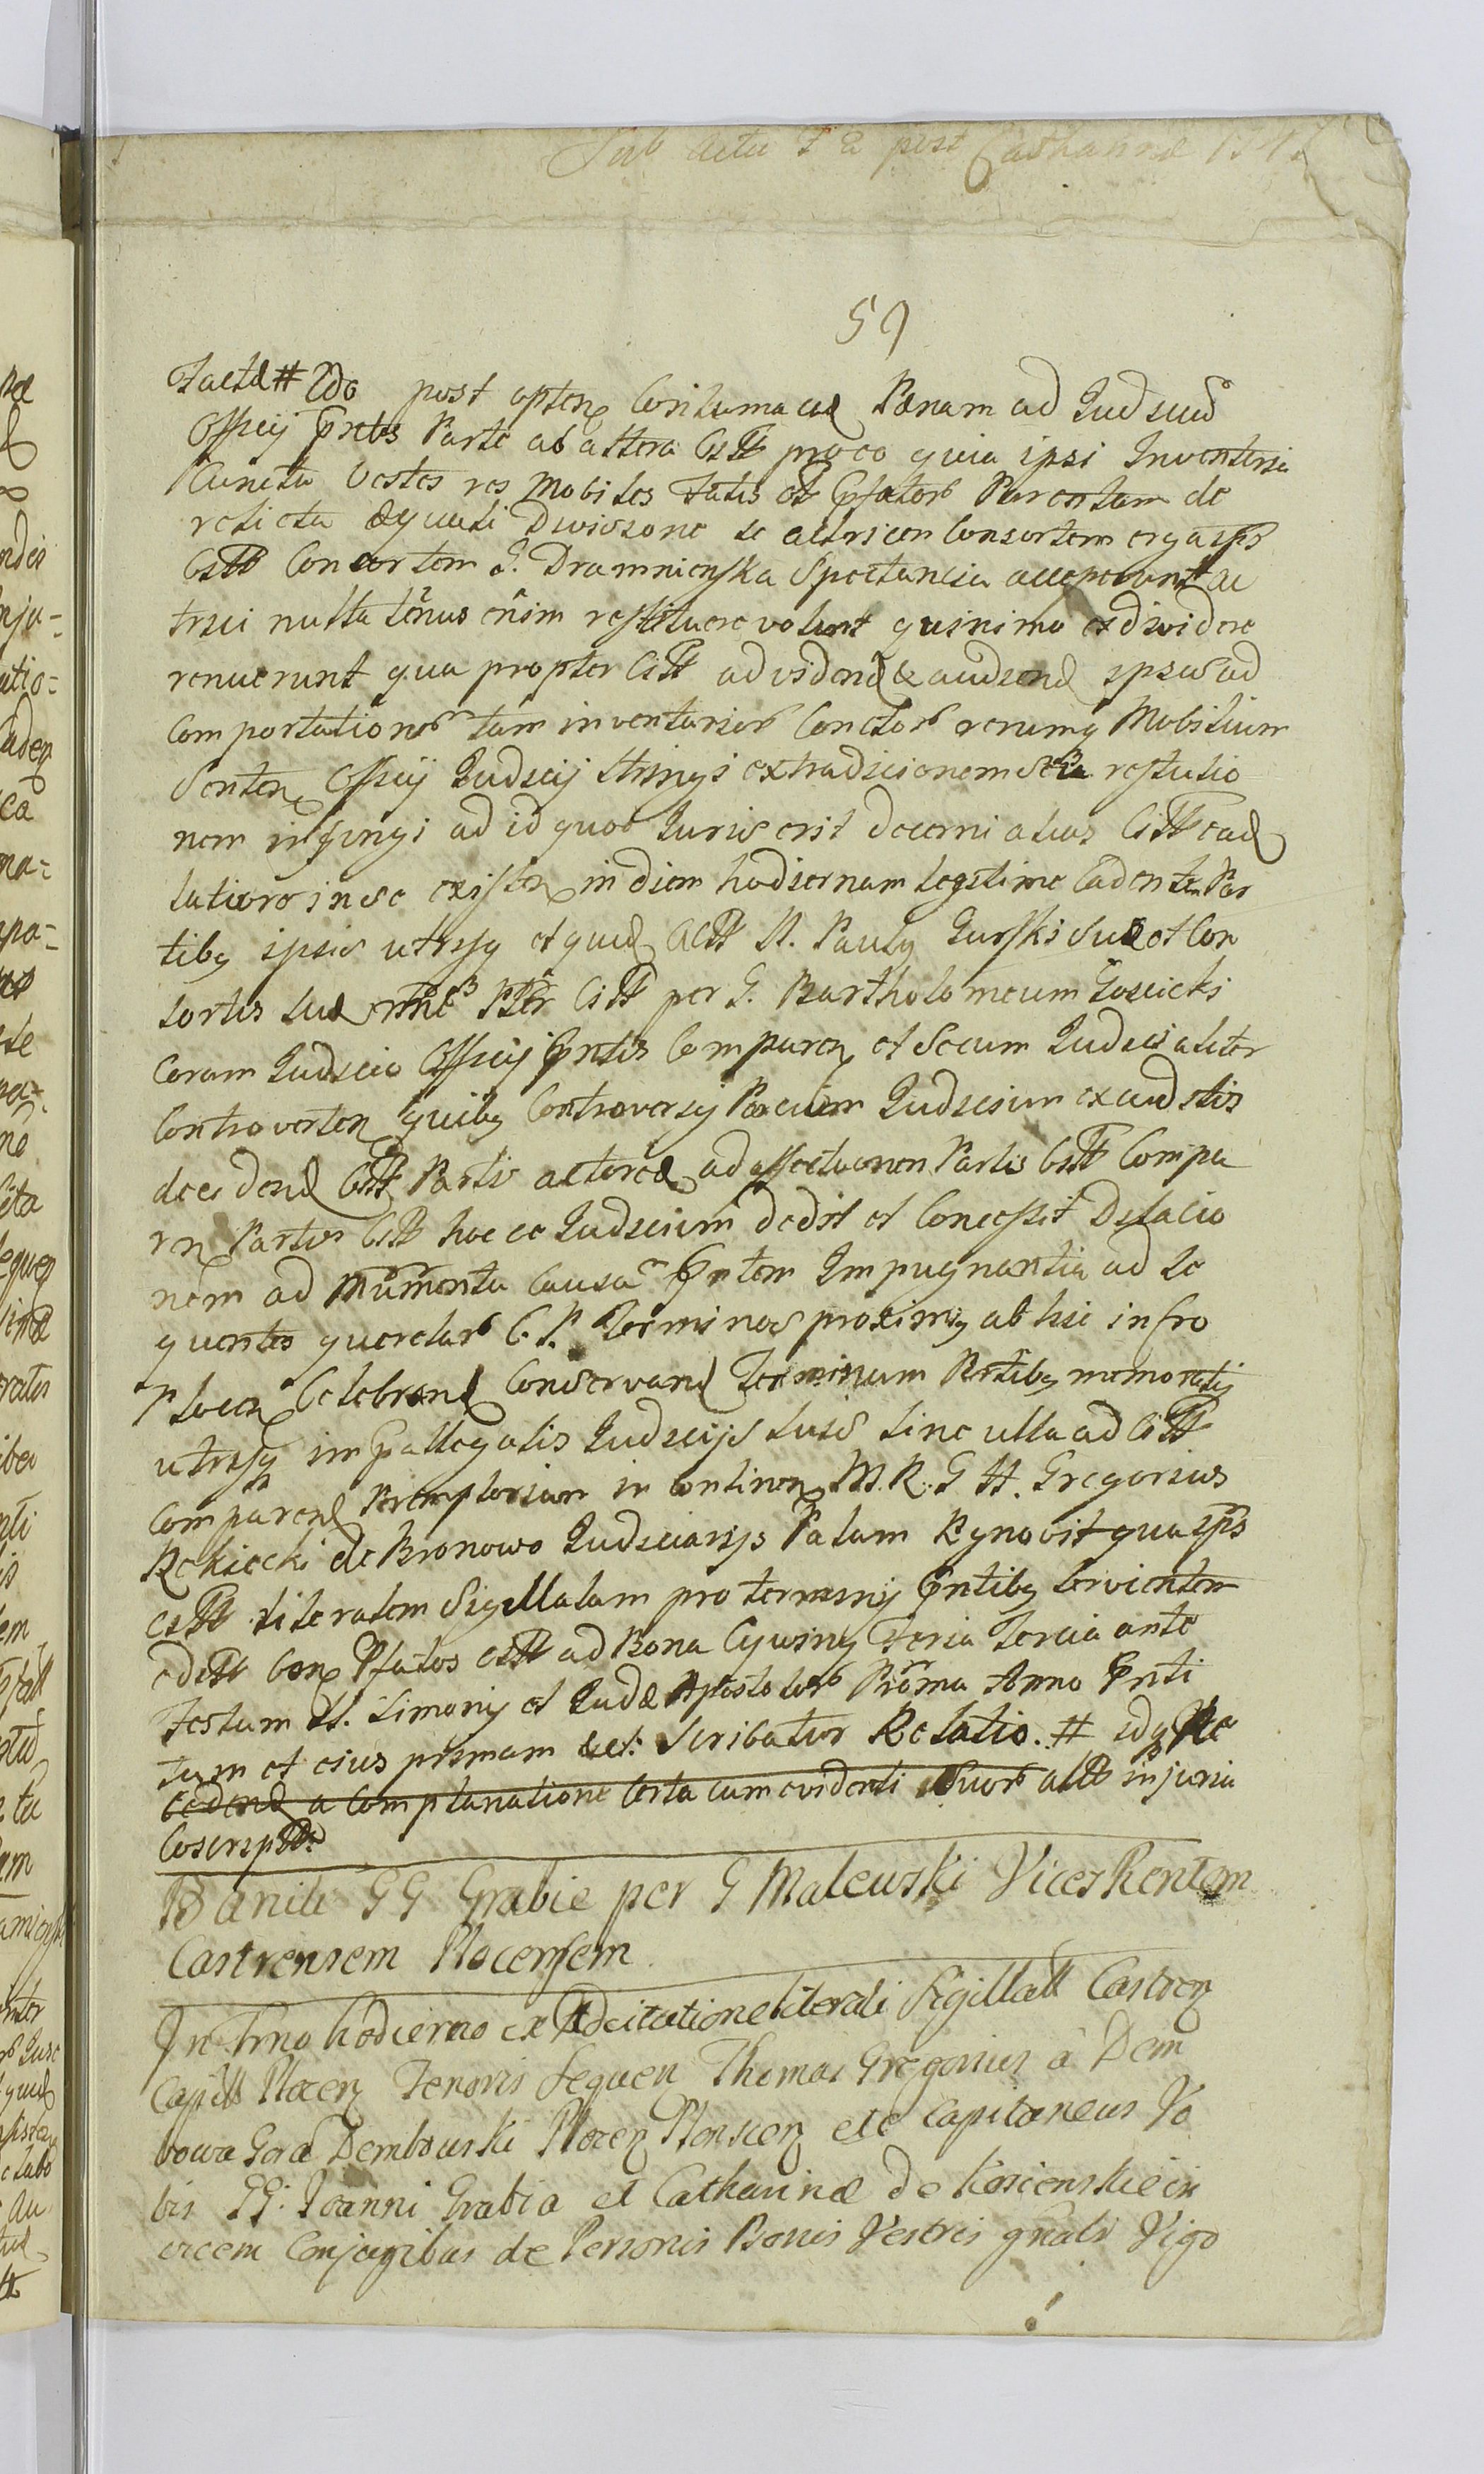 Sub Actu F 2 post Catharinæ 174
59
Factæ # Ido post opten Contumaciæ Pænam ad Judiciu
Officij Pntis Parte ab altera Citt proeo quia ipsi Inventaria
Cuncta Vestes res Mobiles Fatis Pfator Parentum de
relicta æquali Divisione se actricem Consortem erga ips
Citt Consortem G. Dramnienska Spectancia acceperunt ac
trici nulla tenus enim restituere volunt quinimo exdividere
renuerunt qua propter Citt ad videnđ & audienđ ipsis ad
Comportationē tam inventarior Cunctor rerumq Mobilium
Senten Officij Judicij Stringi extradicionem seu restutio
nem injungi ad id quod Juris erit Decerni alias Citt ead
latiore in se existen in diem hodiernam legitime Cadente Par
tibq ipsis utrisq et quid Actt N. Paulq Turski suæ et Con
sortis suæ noie Pter Citt per G. Bartholomeum Gosicki
Coram Judicio Officij Pntis Comparen et Secum Judicialiter
Controverten quibq Controversij Parcium Judicium exauditis
decidenđ Citt Partis actoreæ ad affectaonem Partis Citt Compa
ren Partis Citt hocce Judicium Dedit et Concessit Dilacio
nem ad Munimenta Causam Pntem Impugnantia ad Se
quentes querelar C. P. Terminos proximiq ab hic in Cro
Plocen Celebrand Conservanđ Terminum Partibq memoratis
utrisq in Pallegatis Judicijs suis sine ulla ad Citt
Comparend Peremptorium in Continen M. R. G H. Gregorius
Rokicki de Bronowo Judiciarijs Palam Rgnovit qua ips
Citt Literalem Sigillatam pro terminij Pntibq Servientem
editt Con Pfatos Citt ad Bona Cywiny Feria Tercia ante
Festum SS. Simonij et Judæ Apostolor Proma Anno Pnti
tum et eius primam &c: Scribatur Relatio. # Idq Re
cedend a Complanatione Certa cum evidenti suor actt injuria
Coscriptt
Banili GG Grabie per G Malewski Vices Rentem
Castrensem Plocensem
In Trno hodierno ex Adcitatione literali Sigillatt Castren
Capitt Plocen Tenoris Sequen Thomas Gregorius â Dem
bowa Gora Dembowski Plocen Plonscen etc Capitaneus Vo
bis GG. Joanni Grabia et Catharinæ De Kosienskie in
vicem Conjugibus de Personis Bonis Vestris gnalr Vigo